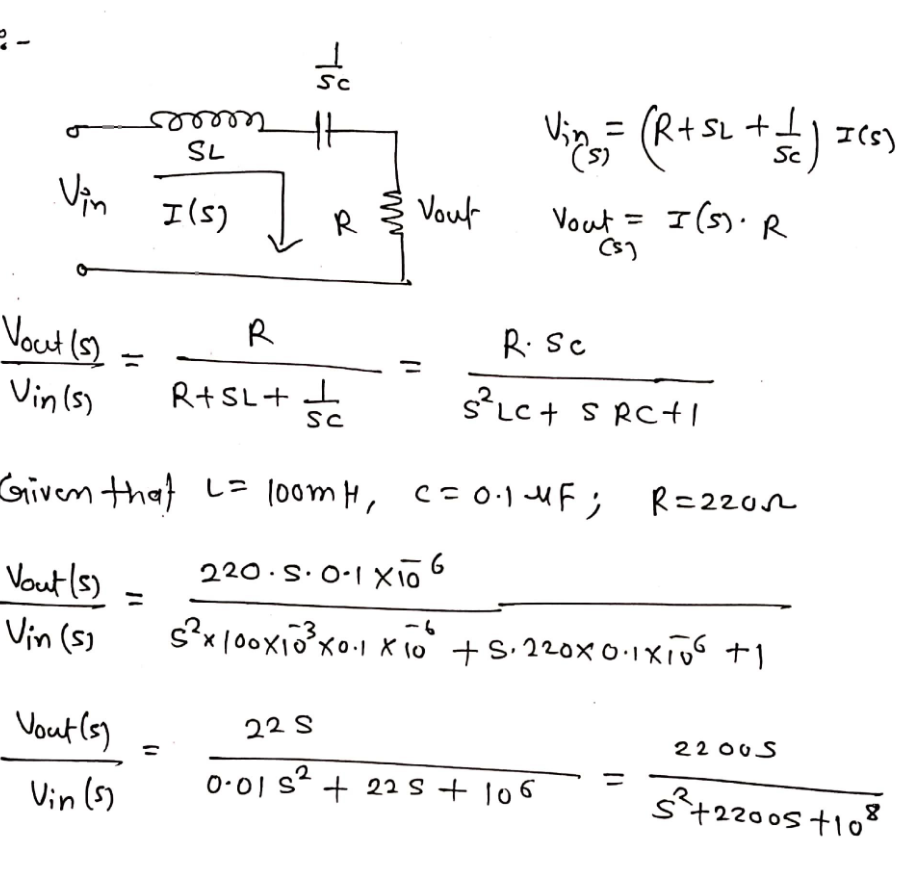 :-
1/SC
SL
Vin
I(S)
R
Vout
Vin(s) = (R + SL + 1/SC) I(S)
Vout(s) = I(S) · R
Vout(s)/Vin(s) = R/(R + SL + 1/SC) = R·SC/(S²LC + SRC + 1)
Given that L = 100mH, C = 0.1 μF; R = 220Ω
Vout(s)/Vin(s) = (220·S·0.1×10⁻⁶)/(S²×100×10⁻³×0.1×10⁻⁶ + S·220×0.1×10⁻⁶ + 1)
Vout(s)/Vin(s) = 22S/(0.01S² + 22S + 10⁶) = 2200S/(S² + 2200S + 10⁸)